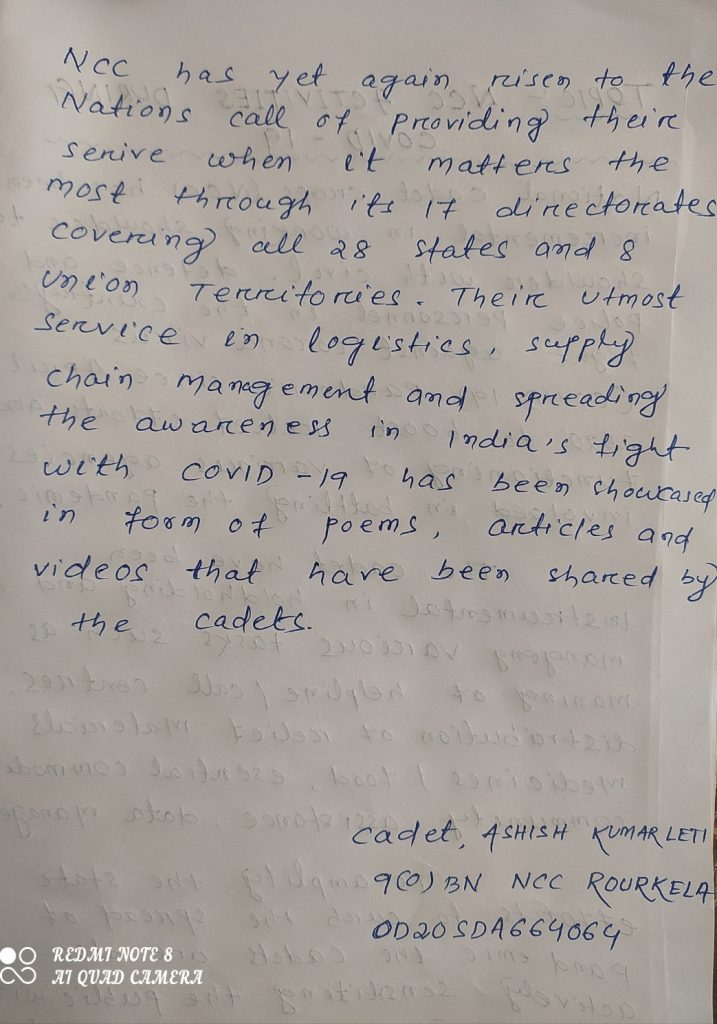 NCC has yet again risen to the
Nations call of providing their
serive when it matters the
most through its 17 directorates
covering all 28 states and 8
Union Territories. Their utmost
Service in logistics, supply
chain management and spreading
the awareness in india's fight
with COVID-19 has been showcased
in form of poems, articles and
videos that have been shared by
the cadets.
Cadet, ASHISH KUMAR LETI
9(O) BN NCC ROURKELA
OD20SDA664064
REDMI NOTE 8
AI QUAD CAMERA